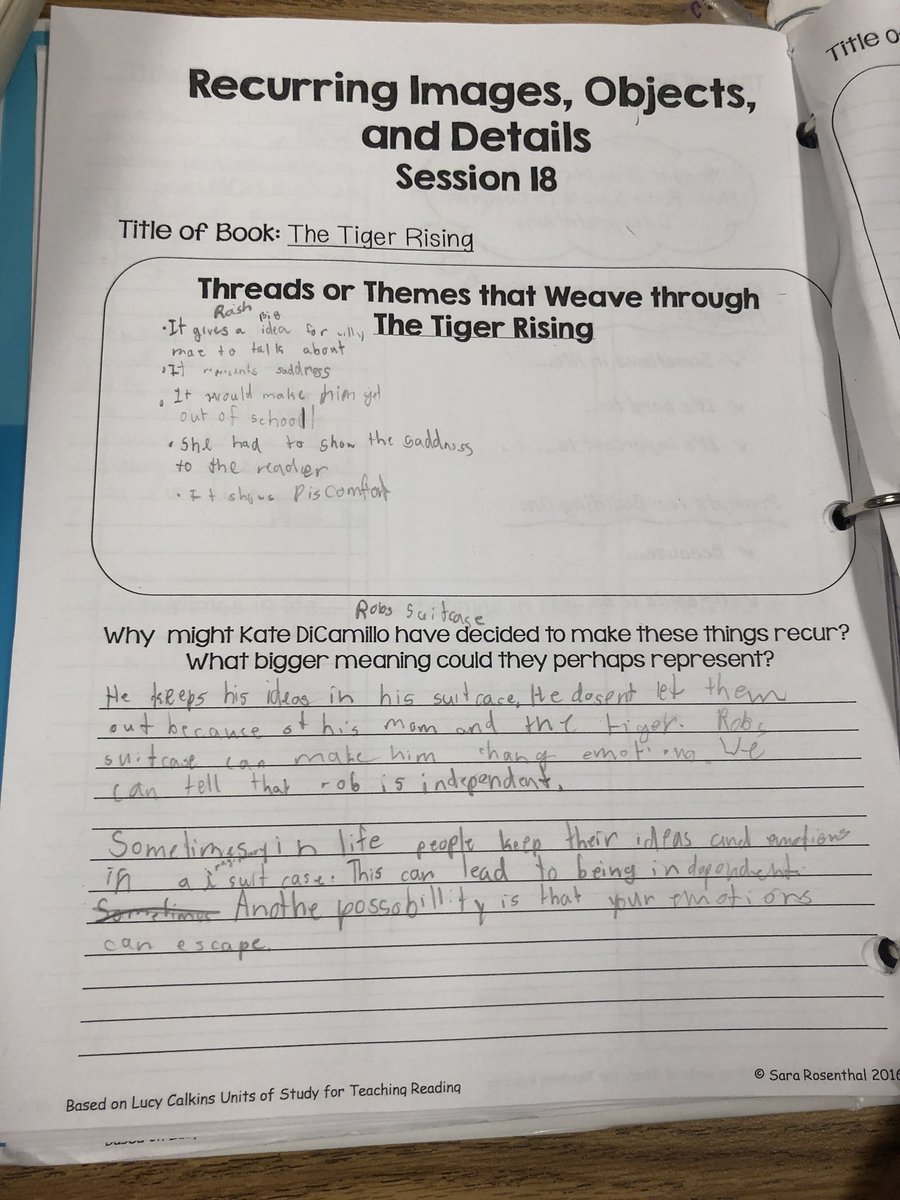 Recurring Images, Objects,
and Details
Session 18
Title of Book: The Tiger Rising
Threads or Themes that Weave through
The Tiger Rising
Rash
big
·It gives a idea for willy
mae to talk about
·It represents saddness
·It would make him get
out of school!
·She had to show the saddness
to the reader
·It shows Discomfort
Robs Suitcase
Why might Kate DiCamillo have decided to make these things recur?
What bigger meaning could they perhaps represent?
He keeps his ideas in his suitcase, He dosent let them
out because of his mom and the tiger. Robs
suitcase can make him change emotions. We
can tell that rob is independent.
Sometimes in life people keep their ideas and emotions
in a suit case. This can lead to being independent.
Sometimes Anothe possobillity is that your emotions
can escape.
Based on Lucy Calkins Units of Study for Teaching Reading
© Sara Rosenthal 2016
Title o